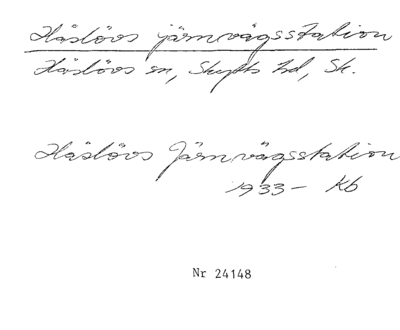 Håslövs järnvägsstation
Håslövs sn, Skytts hd, Sk.
Håslövs Järnvägsstation
1933– Kb
Nr 24148